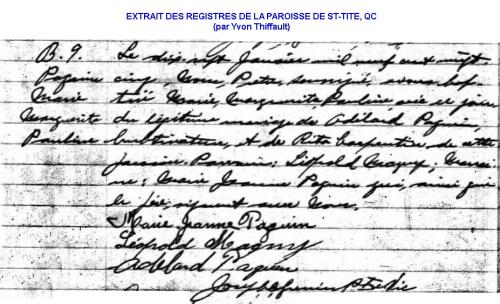 EXTRAIT DES REGISTRES DE LA PAROISSE DE ST-TITE, QC
(par Yvon Thiffault)
B. 9. Le dix-sept Janvier mil neuf cent vingt-
Paquin cinq, Nous, Prêtre, soussigné, avons bap-
Marie tisé Marie, Marguerite Pauline née ce jour
Marguerite du légitime mariage de Adélard Paquin,
Pauline cultivateur, et de Rita Carpentier de cette
paroisse. Parrain: Léopold Magny, Marrai-
ne: Marie Jeanne Paquin qui, ainsi que
le père signent avec Nous.
Marie Jeanne Paquin
Léopold Magny
Adélard Paquin